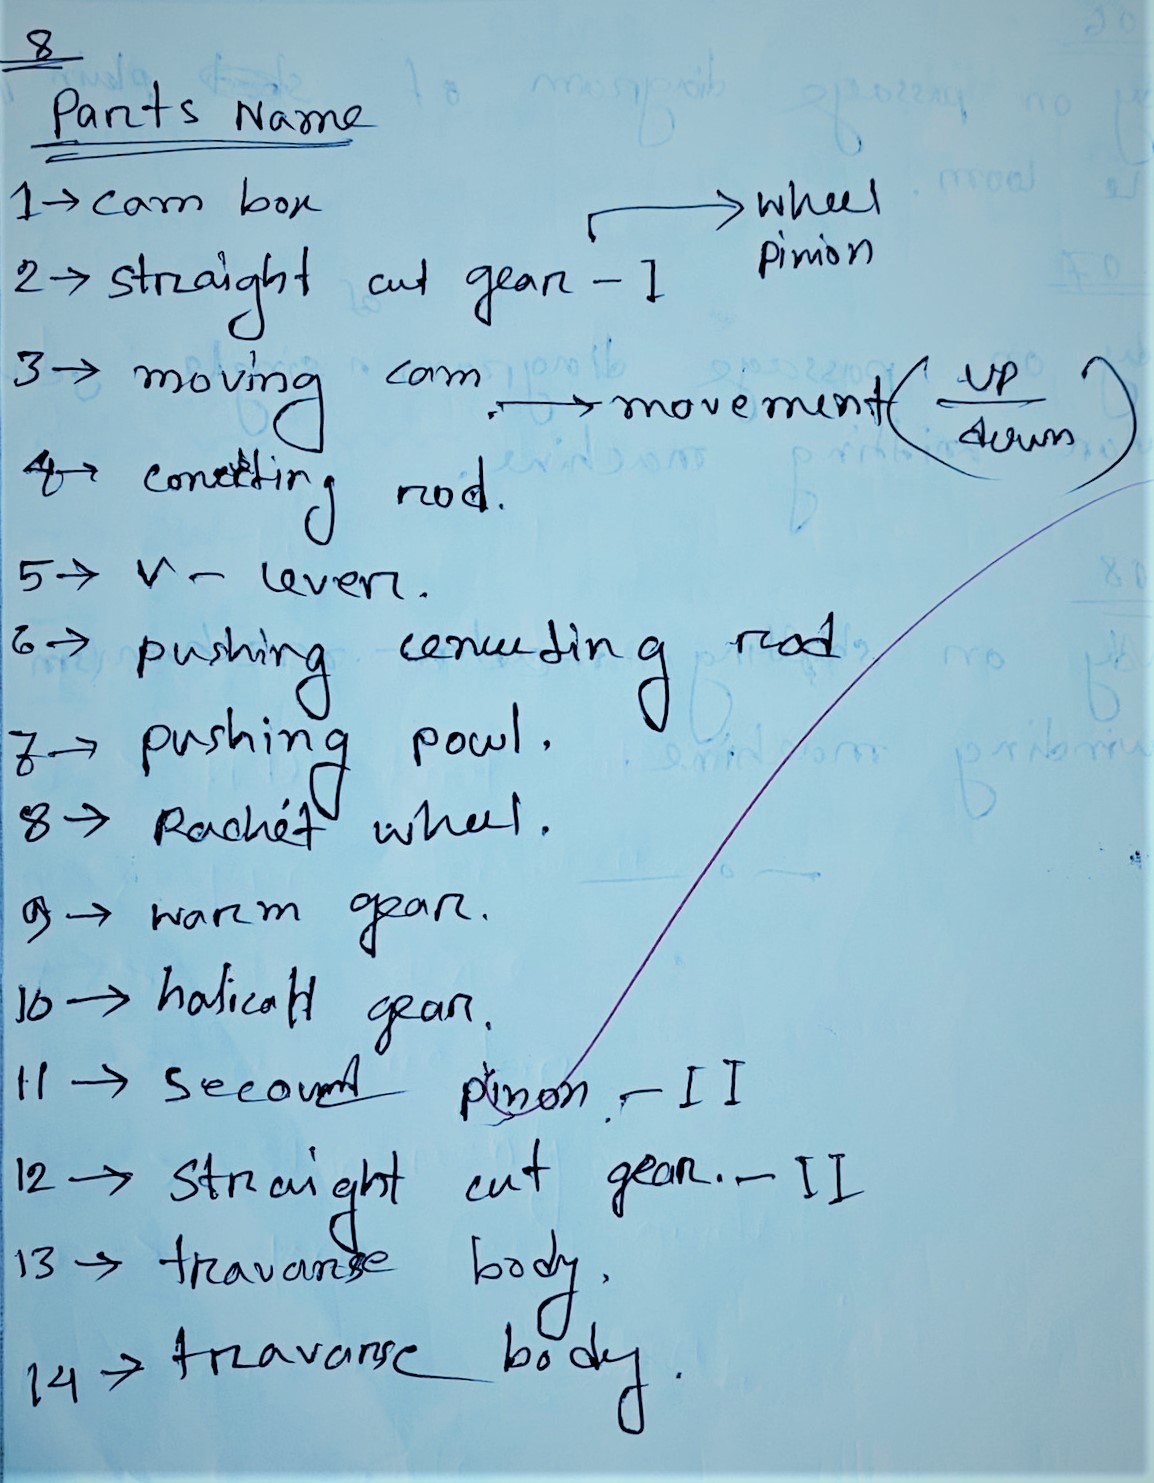 8
Parts Name
1→ cam box
2→ straight cut gear - I → wheel pinion
3→ moving cam → movement (up/down)
4→ conecting rod.
5→ V - lever.
6→ pushing conecting rod
7→ pushing powl.
8→ Rachet wheel.
9→ warm gear.
10→ halical gear.
11→ Second pinon - II
12→ straight cut gear. - II
13→ travarse body.
14→ travarse body.